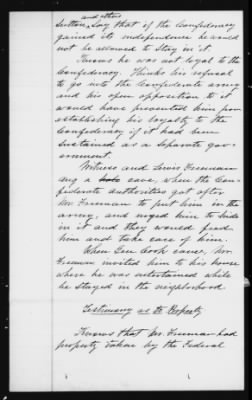 and others
Sutton, say that if the Confederacy
gained its independence he would
not be allowed to stay in it.
Knows he was not loyal to the
Confederacy. Thinks his refusal
to go into the Confederate army
and his open opposition to it
would have prevented him from
establishing his loyalty to the
Confederacy if it had been
sustained as a separate gov-
ernment.
Witness and Lewis Freeman
dug a cave, when the Con-
federate authorities got after
Mr. Freeman to put him in the
army, and urged him to hide
in it and they would feed
him and take care of him.
When Gen Cook came, Mr.
Freeman invited him to his house
where he was entertained while
he stayed in the neighborhood.
Testimony as to Property
Knows that Mr. Freeman had
property taken by the Federal